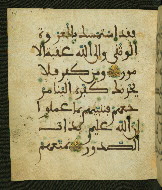 فقد استمسك بالعروة
الوثقى وإلى الله عقبة الا
مور ومن كفر فلا
يحزنك كفره إلينا مر
جعهم فننبئهم بما عملوا
إن الله عليم بذات
الصدور نمتعهم